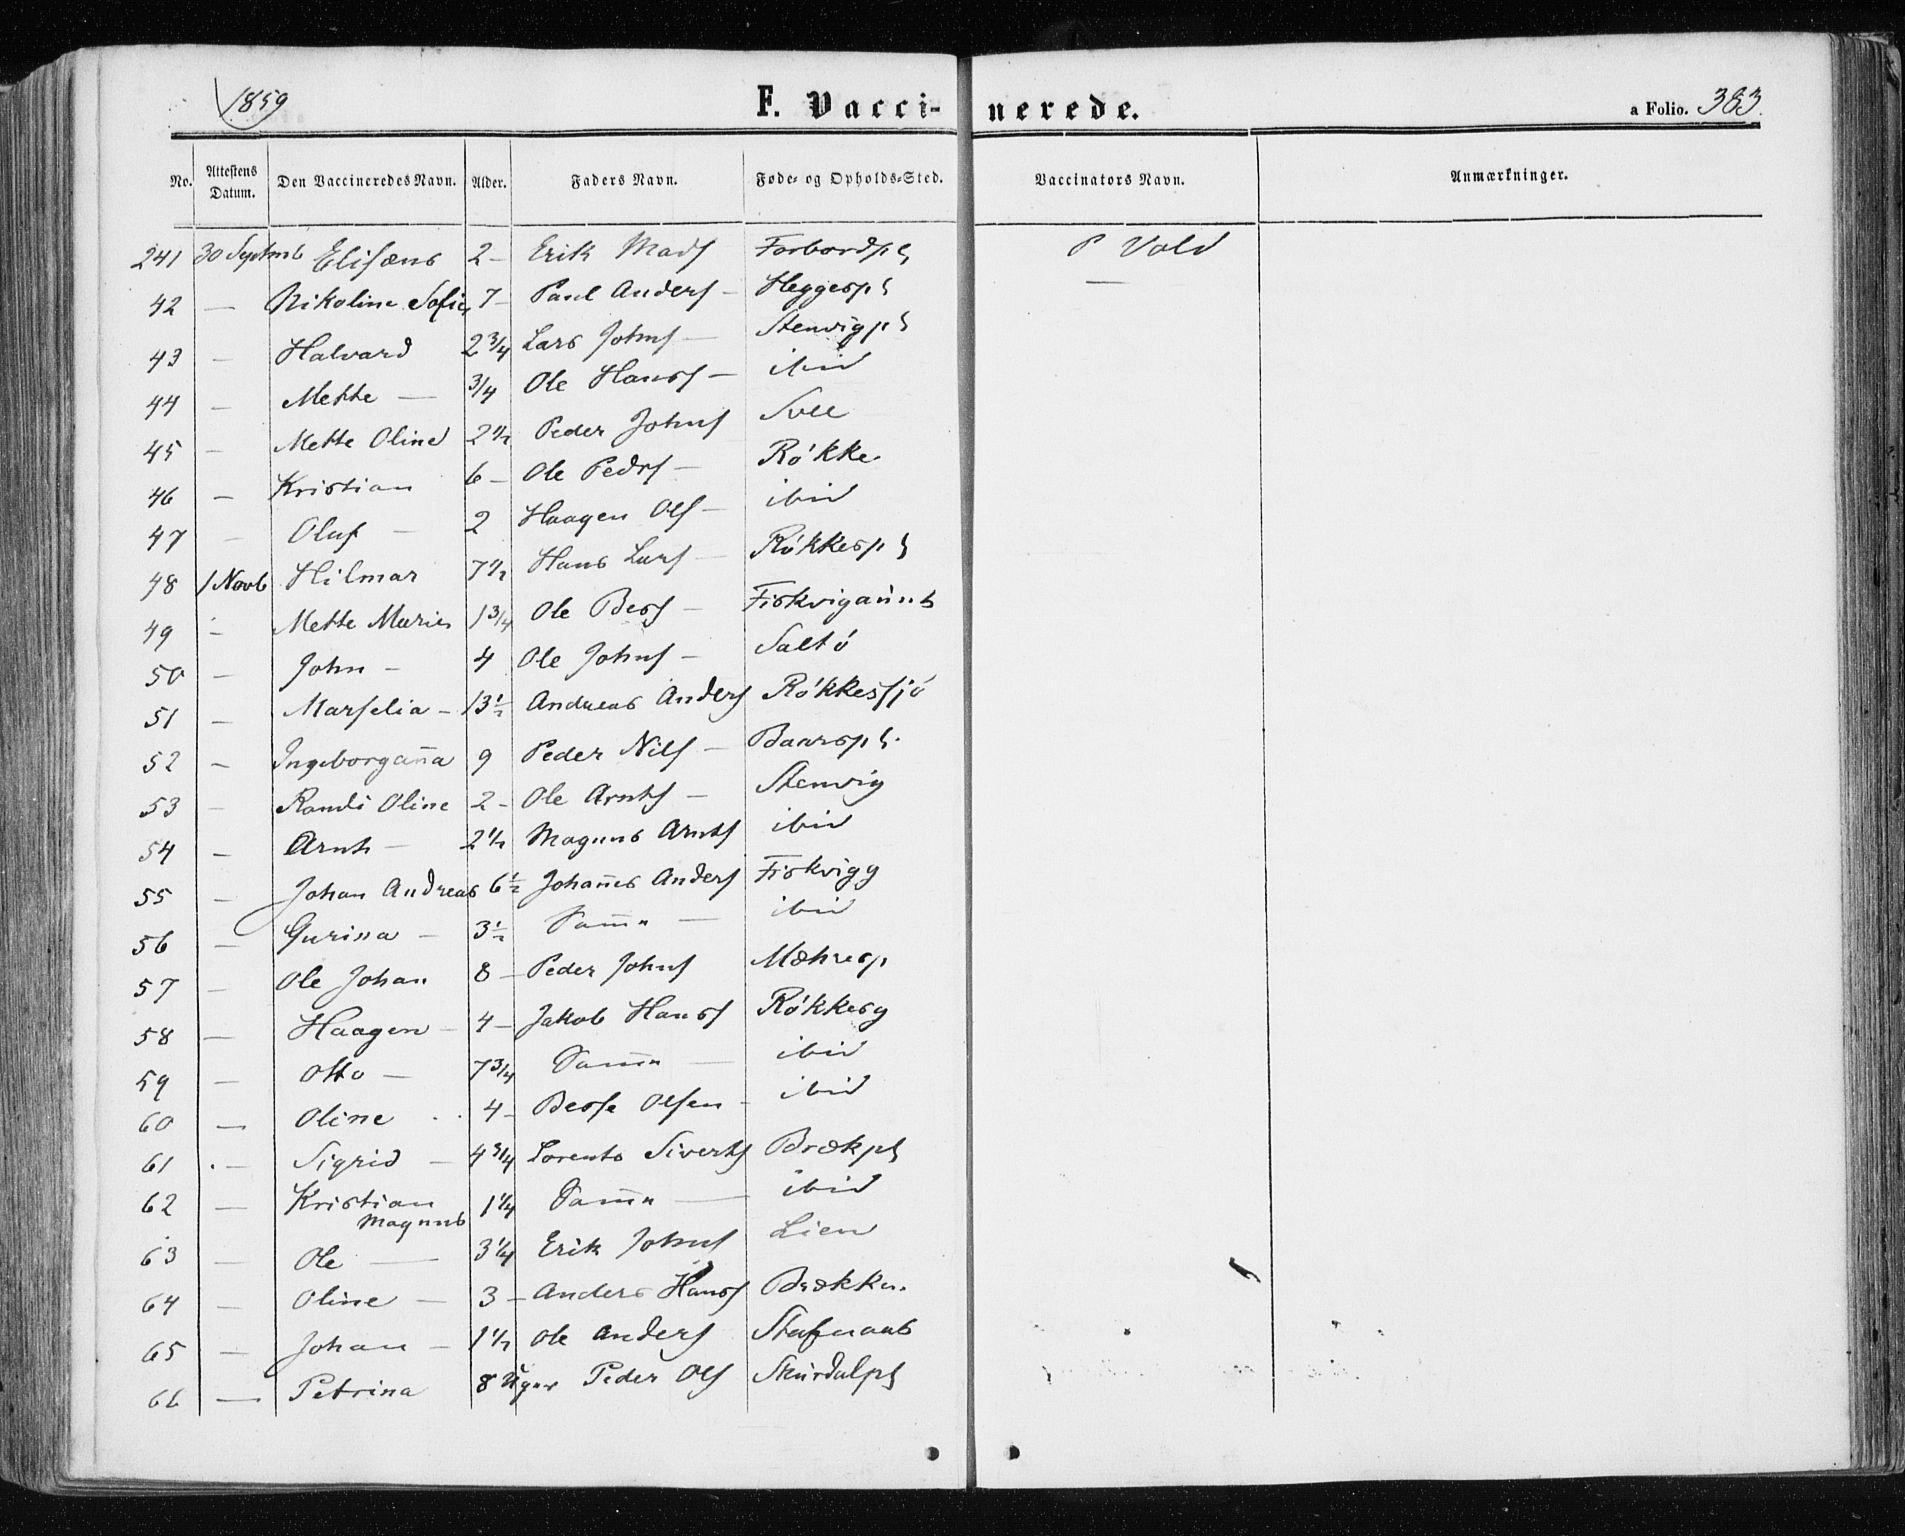 1859 F. Vaccinerede. a Folio. 383.
No. Attestens Datum. Den Vaccineredes Navn. Alder. Faders Navn. Føde- og Opholds-Sted. Vaccinators Navn. Anmærkninger.
241 30 Septmb Elisæus 2 - Erik Madsf Forbordpl P Vold
42 — Nikoline Sofie 7 - Paul Andersf - Heggespl —
43 — Halvard 2 3/4 Lars Johnsf — Stenvigpl
44 — Mette — 3/4 Ole Hansf — ibid
45 — Mette Oline 2 1/2 Peder Johnsf Svee
46 — Kristian 6 - Ole Pedrsf — Røkke
47 — Oluf — 2 Haagen Olsf — ibid
48 1 Novb Hilmar 7 1/2 Hans Larsf — Røkkespl
49 — Mette Marie 1 3/4 Ole Bersf — Fiskvigaunb
50 — John — 4 Ole Johnsf — Saltø
51 — Marselia - 13 1/2 Andreas Andersf Røkkessjø
52 — Ingeborganna 9 Peder Nilsf — Baarspl.
53 — Randi Oline 2 - Ole Arntsf — Stenvig
54 — Arnt — 2 1/2 Magnus Arntsf ibid
55 — Johan Andreas 6 1/2 Johannes Andersf Fiskvigg
56 — Gurina — 3 1/2 Samme — ibid
57 — Ole Johan 8 - Peder Johnsf Mæhresp
58 — Haagen — 4 - Jakob Hansf Røkkesg
59 — Otto — 7 3/4 Samme — ibid
60 — Oline 4 - Berse Olsen - ibid
61 — Sigrid — 4 3/4 Lorents Sivertsf Brækpl
62 — Kristian Magnus 1 1/4 Samme — ibid
63 — Ole — 3 1/4 Erik Johnsf Lien
64 — Oline — 3 - Anders Hansf Brækken.
65 — Johan — 1 1/2 Ole Andersf Stafnaab
66 — Petrina 8 Uger Peder Olsf Skurdalpl